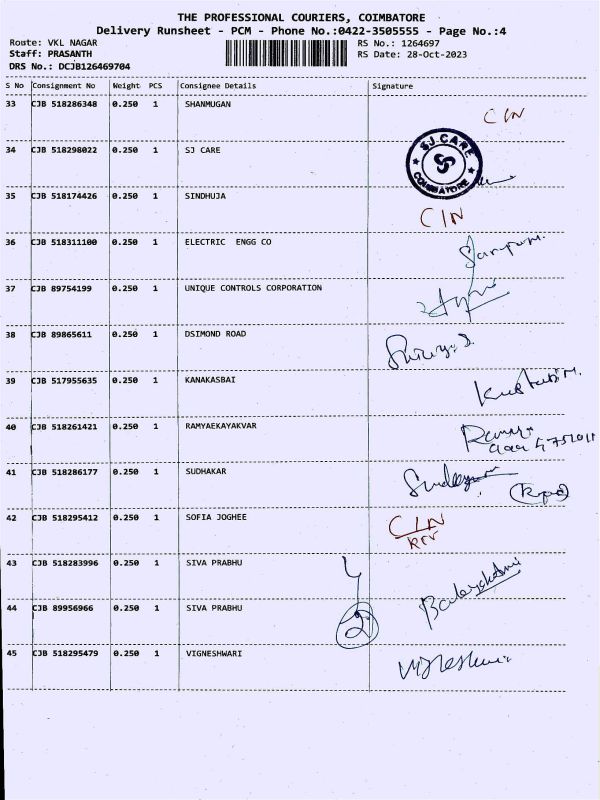 THE PROFESSIONAL COURIERS, COIMBATORE
Delivery Runsheet - PCM - Phone No.:0422-3505555 - Page No.:4
Route: VKL NAGAR RS No.: 1264697
Staff: PRASANTH RS Date: 28-Oct-2023
DRS No.: DCJB126469704
S No Consignment No Weight PCS Consignee Details Signature
33 CJB 518286348 0.250 1 SHANMUGAN CIN
34 CJB 518298022 0.250 1 SJ CARE SJ CARE COIMBATORE
35 CJB 518174426 0.250 1 SINDHUJA CIN
36 CJB 518311100 0.250 1 ELECTRIC ENGG CO
37 CJB 89754199 0.250 1 UNIQUE CONTROLS CORPORATION
38 CJB 89865611 0.250 1 DSIMOND ROAD
39 CJB 517955635 0.250 1 KANAKASBAI
40 CJB 518261421 0.250 1 RAMYAEKAYAKVAR
41 CJB 518286177 0.250 1 SUDHAKAR
42 CJB 518295412 0.250 1 SOFIA JOGHEE CIN
43 CJB 518283996 0.250 1 SIVA PRABHU
44 CJB 89956966 0.250 1 SIVA PRABHU 2
45 CJB 518295479 0.250 1 VIGNESHWARI